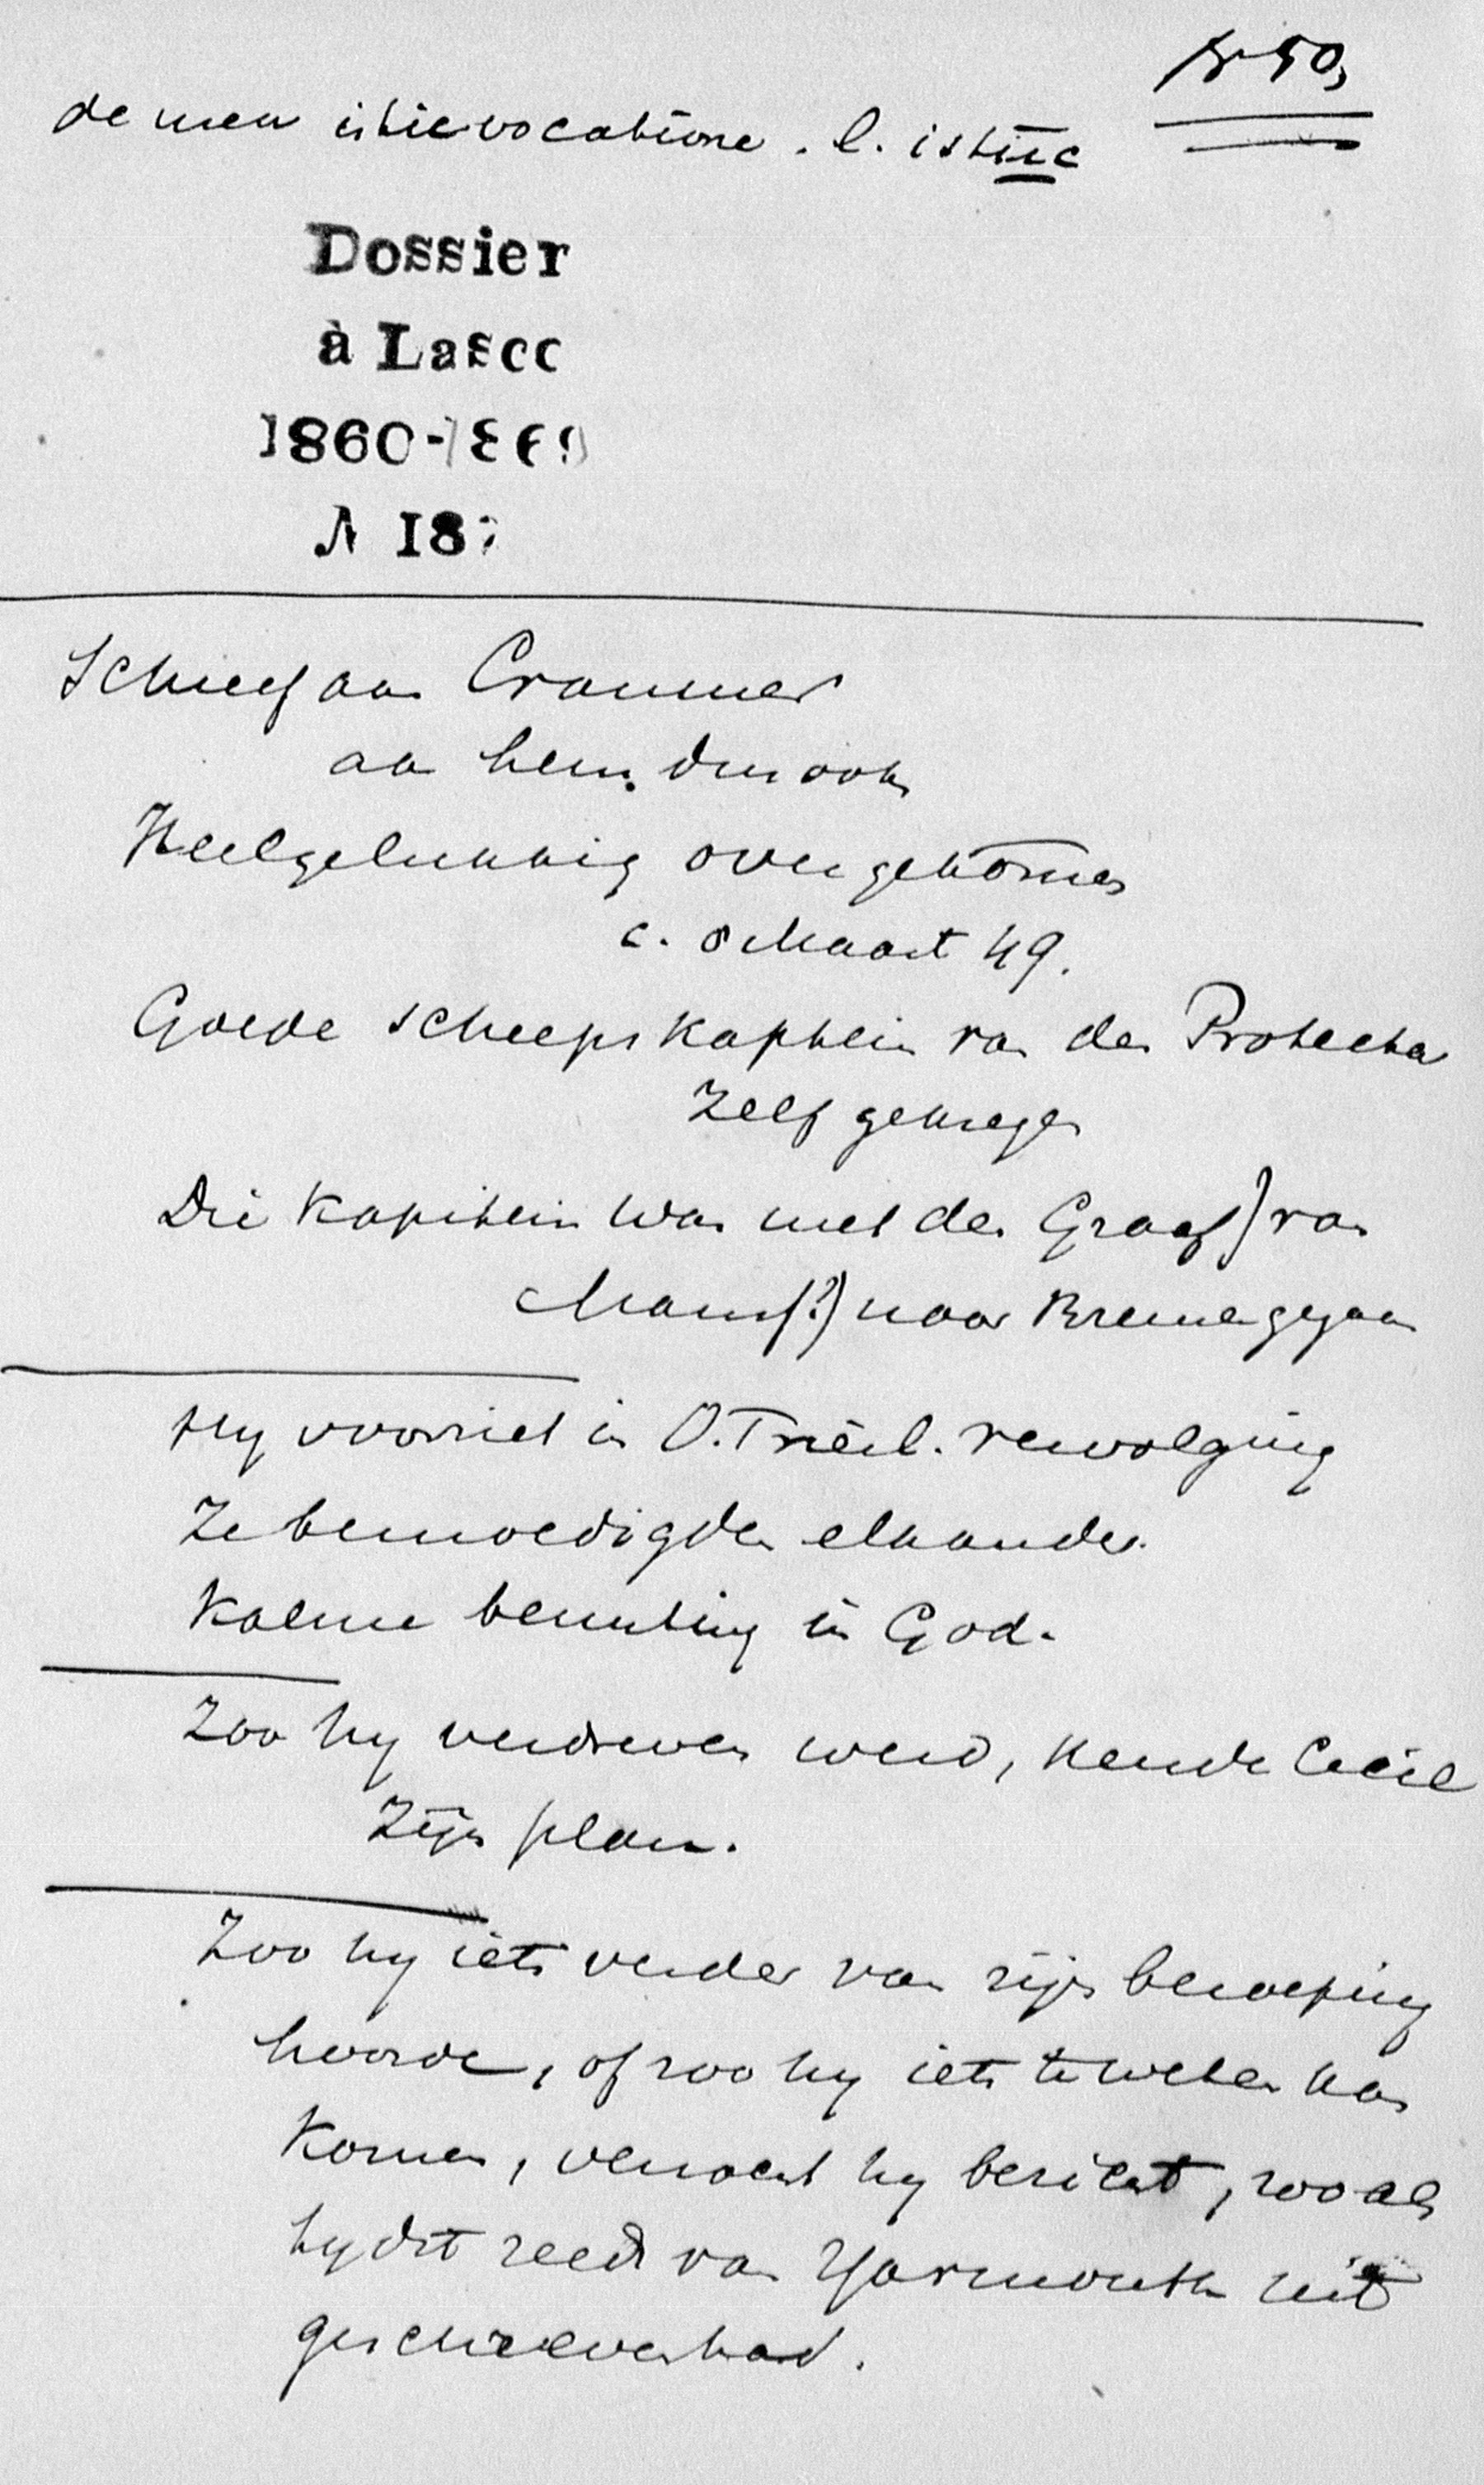 № 50,
de mea istic vocatione. l. istuc
Dossier
à Lasco
1860-1869
A 187
Schreef aan Cranmer
aan hem dus ook
Heel gelukkig overgekomen
c. 8 Maart 49.
Goede scheepskaptein van den Protector
zelf gekregen
Die Kapitein was met den Graaf) van
Mansf?) naar Bremen gegaan
Hy voorziet in O. Friesl. vervolging
Ze bemoedigden elkander.
Kalme berusting in God.
Zoo hy verdreven werd, kende Cecil
Zijn plan.
Zoo hy iets verder van zijn beroeping
hoorde, of zoo hy iets te weten kan
Komen, verwacht hy bericht, zooals
hy dit reeds van Yarmouth uit
geschreven had.